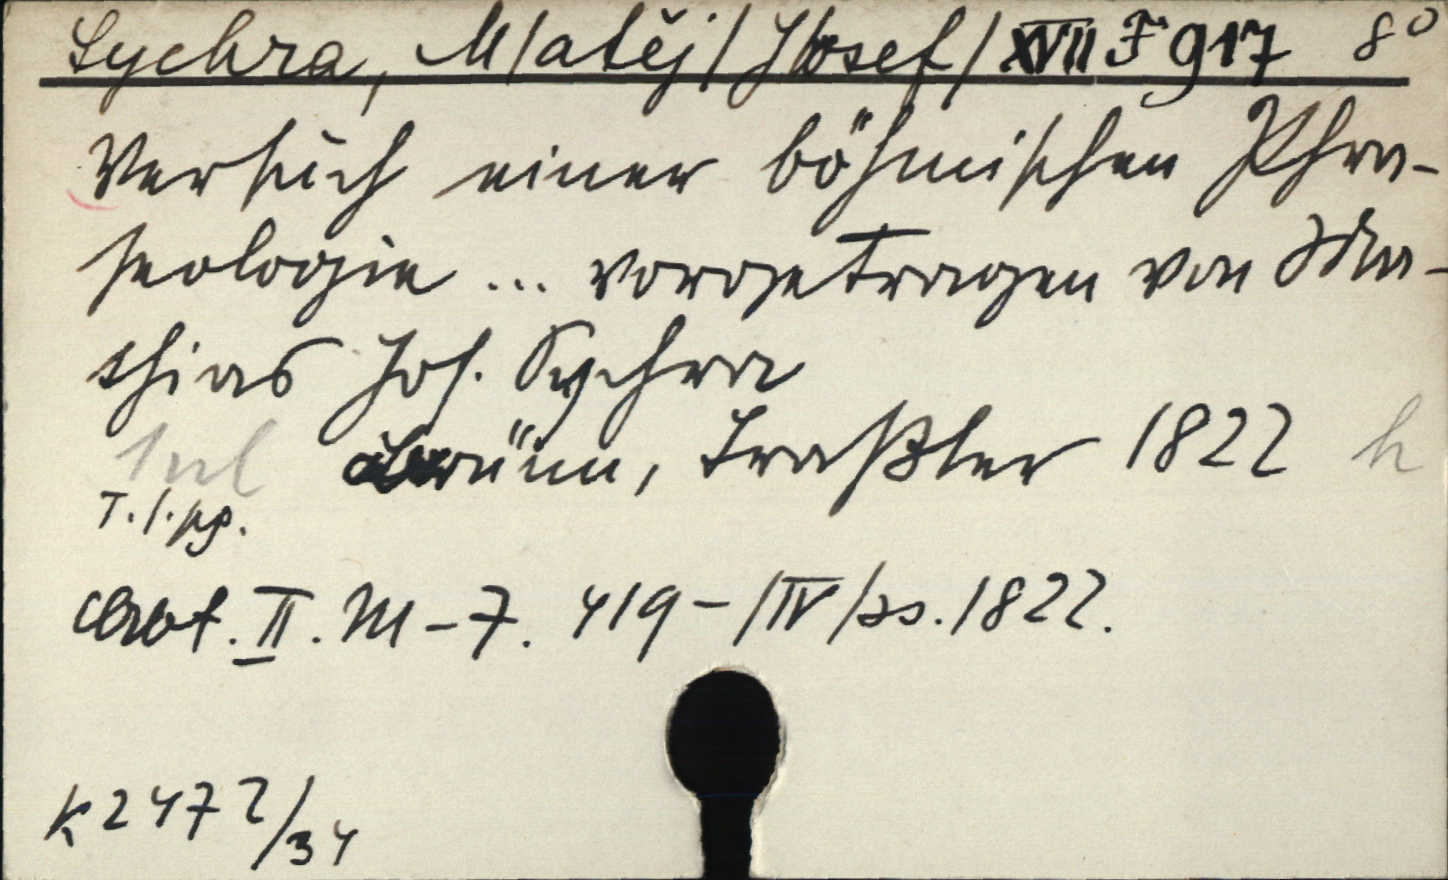 Sychra, M/atěj/ J/osef/ XVII F 917 8°
Versuch einer böhmischen Phra-
seologie ... vorgetragen von Ma-
thias Jos. Sychra
Brünn, Traßler 1822 h
T. l. pp.
Abt. II. M-7. 419-/IV/ss. 1822.
K 2472/34